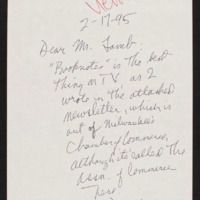 2-17-95
Dear Mr. Lamb:
"Booknotes" is the best
thing on TV as I
wrote in the attached
newsletter, which is
out of Milwaukee's
Chamber of Commerce,
although it's called the
Assn. of Commerce
here.